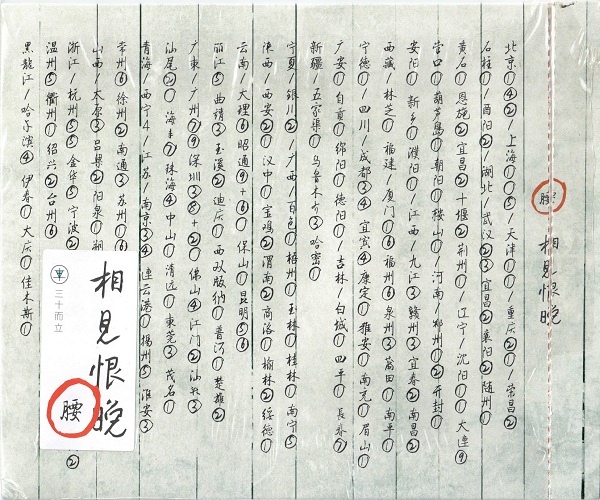 腰 相見恨晚
北京①④②/上海①①⑤/天津①①①/重庆②①/荣昌②
石柱①/酉阳②/湖北/武汉②③宜昌②襄阳②随州①
黄石①恩施②宜昌②十堰②荆州①/辽宁/沈阳①①大连⑨
营口①葫芦島①朝阳①鞍山①/河南/郑州①②开封①
安阳①新乡①濮阳①/江西/九江③赣州③宜春②南昌②
西藏/林芝①福建/厦门①⑥福州⑥泉州③莆田①南平①
宁德①/四川/成都③④宜宾④康定①雅安①南充①眉山①
广安①自貢①绵阳①德阳①/吉林/白城①四平①長春⑦
新疆/五家渠①乌鲁木齐③哈密①
宁夏/银川②/广西/百色①梧州①玉林①桂林①南宁⑤
陕西/西安②①汉中①宝鸡②渭南②商洛①榆林②绥德①
云南/大理⑥昭通⑨+⑥保山①昆明⑤⑥
丽江⑤曲靖③玉溪②迪庆①西双版纳①普洱①楚雄②
广東/广州⑦⑨深圳③⑧+②①佛山④江门②汕头③
汕尾②①海丰⑦珠海④中山①清远①東莞③茂名①
青海/西宁4/江苏/南京③④連云港①揚州⑤淮安③
常州⑥徐州②南通③苏州①⑥
山西/太原③吕梁②阳泉①
浙江/杭州⑤⑤金华⑤宁波②
温州⑤衢州①绍兴②台州⑥
黑龍江/哈尔濱④伊春①大庆①佳木斯①
相見恨晚
腰
三十而立